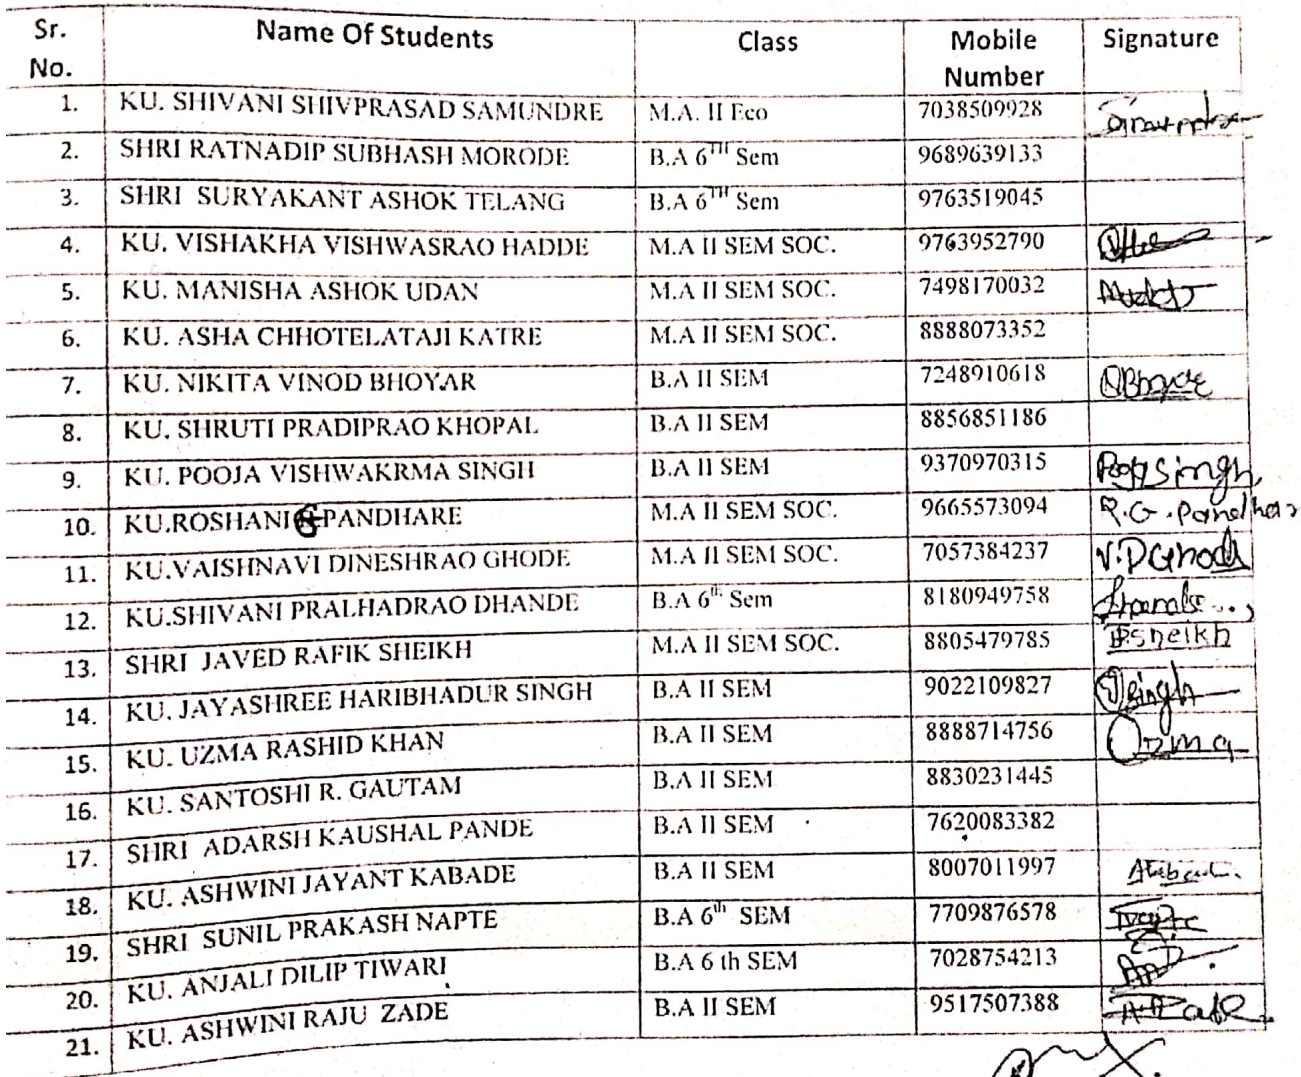 Sr. No. Name Of Students Class Mobile Number Signature
1. KU. SHIVANI SHIVPRASAD SAMUNDRE M.A. II Eco 7038509928
2. SHRI RATNADIP SUBHASH MORODE B.A 6TH Sem 9689639133
3. SHRI SURYAKANT ASHOK TELANG B.A 6TH Sem 9763519045
4. KU. VISHAKHA VISHWASRAO HADDE M.A II SEM SOC. 9763952790
5. KU. MANISHA ASHOK UDAN M.A II SEM SOC. 7498170032
6. KU. ASHA CHHOTELATAJI KATRE M.A II SEM SOC. 8888073352
7. KU. NIKITA VINOD BHOYAR B.A II SEM 7248910618
8. KU. SHRUTI PRADIPRAO KHOPAL B.A II SEM 8856851186
9. KU. POOJA VISHWAKRMA SINGH B.A II SEM 9370970315 Pooja Singh
10. KU.ROSHANI G PANDHARE M.A II SEM SOC. 9665573094 R.G. Pandhare
11. KU.VAISHNAVI DINESHRAO GHODE M.A II SEM SOC. 7057384237 V.D Ghode
12. KU.SHIVANI PRALHADRAO DHANDE B.A 6th Sem 8180949758
13. SHRI JAVED RAFIK SHEIKH M.A II SEM SOC. 8805479785 sheikh
14. KU. JAYASHREE HARIBHADUR SINGH B.A II SEM 9022109827 Singh
15. KU. UZMA RASHID KHAN B.A II SEM 8888714756 Uzma
16. KU. SANTOSHI R. GAUTAM B.A II SEM 8830231445
17. SHRI ADARSH KAUSHAL PANDE B.A II SEM 7620083382
18. KU. ASHWINI JAYANT KABADE B.A II SEM 8007011997
19. SHRI SUNIL PRAKASH NAPTE B.A 6th SEM 7709876578
20. KU. ANJALI DILIP TIWARI B.A 6 th SEM 7028754213
21. KU. ASHWINI RAJU ZADE B.A II SEM 9517507388